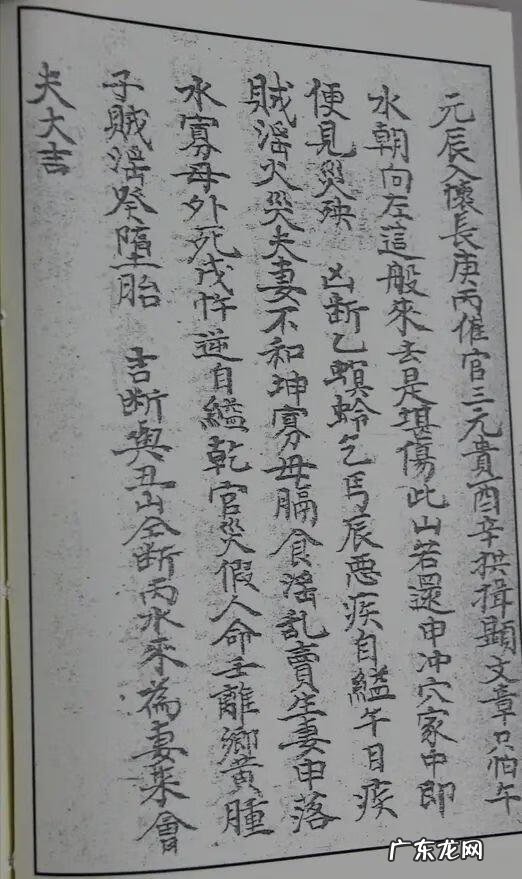 元辰入懷長庚丙催官三元貴酉辛拱揖顯文章只怕午
水朝向左這般來去是堪傷此山若還申冲穴家中即
便見災殃 凶断乙螟蛉乞丐辰惡疾自縊午目疾
賊淫火災夫妻不和坤寡母膈食淫乱賣生妻申落
水寡母外死戌忤逆自縊乾官災假人命壬離鄉黄腫
子賊淫癸墮胎 吉断與丑山仝断丙水來為妻禄會
夫大吉
广东龙网